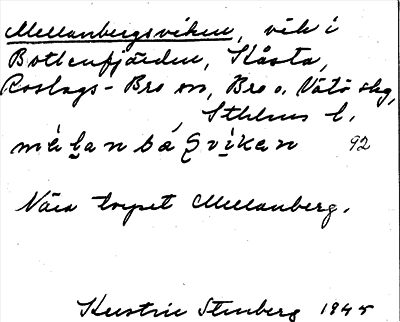 Mellanbergsviken, vik i
Bottenfjärden, Kåsta,
Roslags-Bro sn, Bro o. Vätö skg,
, Sthlms l.
mälanbärviken 92
Nära torpet Mellanberg.
Kerstin Stenberg 1945